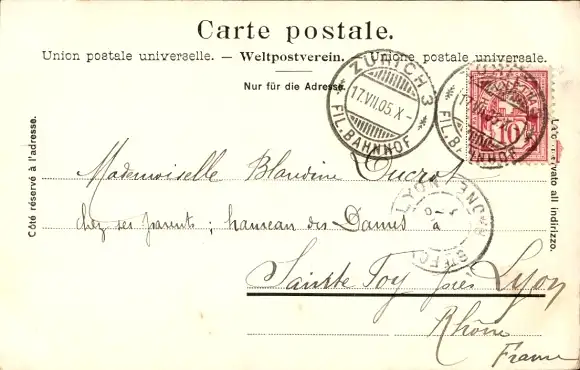 Carte postale.
Union postale universelle. — Weltpostverein. — Unione postale universale.
Nur für die Adresse.
Côté réservé à l'adresse.
ZÜRICH 3
17.VII.05.X-
FIL. BAHNHOF
17.VII.05.X
FIL. B HNHOF
10
Mademoiselle Blandine Ducrot
chez ses parents ; hameau des Dames à
LYON
RHONE
Sainte Foy près Lyon
Rhône
France